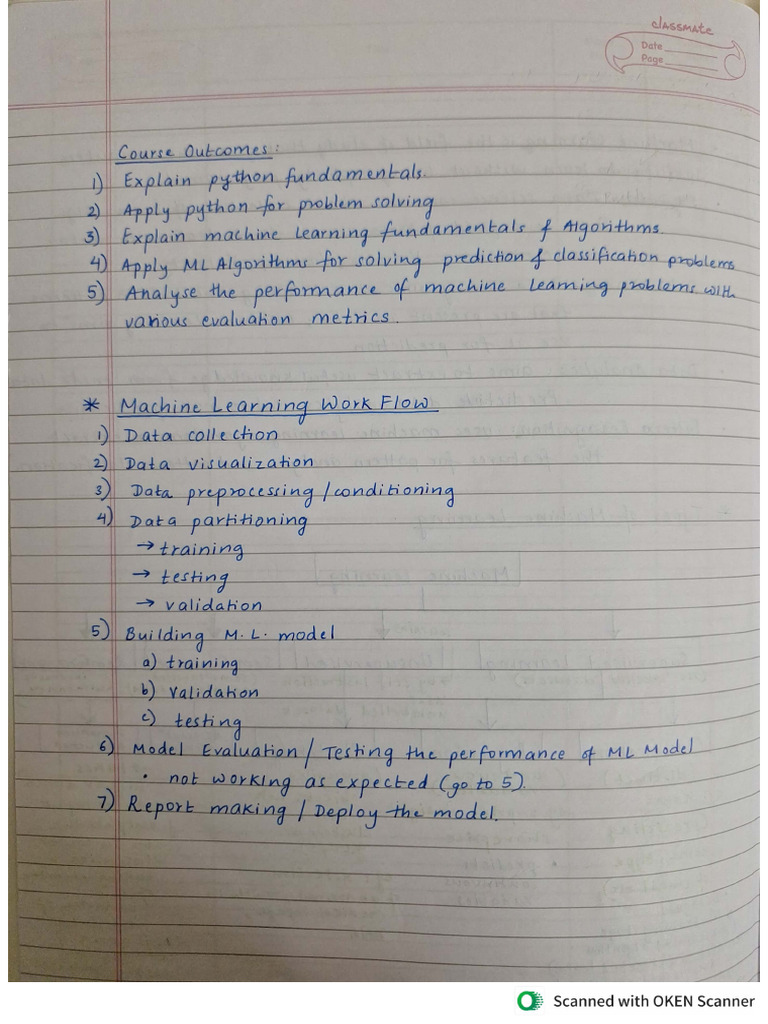 classmate
Date
Page
Course Outcomes:
1) Explain python fundamentals.
2) Apply python for problem solving
3) Explain machine Learning fundamentals & Algorithms.
4) Apply ML Algorithms for solving prediction & classification problems
5) Analyse the performance of machine Learning problems with
various evaluation metrics.
* Machine Learning Work Flow
1) Data collection
2) Data visualization
3) Data preprocessing / conditioning
4) Data partitioning
→ training
→ testing
→ validation
5) Building M.L. model
a) training
b) validation
c) testing
6) Model Evaluation / Testing the performance of ML Model
• not working as expected (go to 5).
7) Report making / Deploy the model.
Scanned with OKEN Scanner